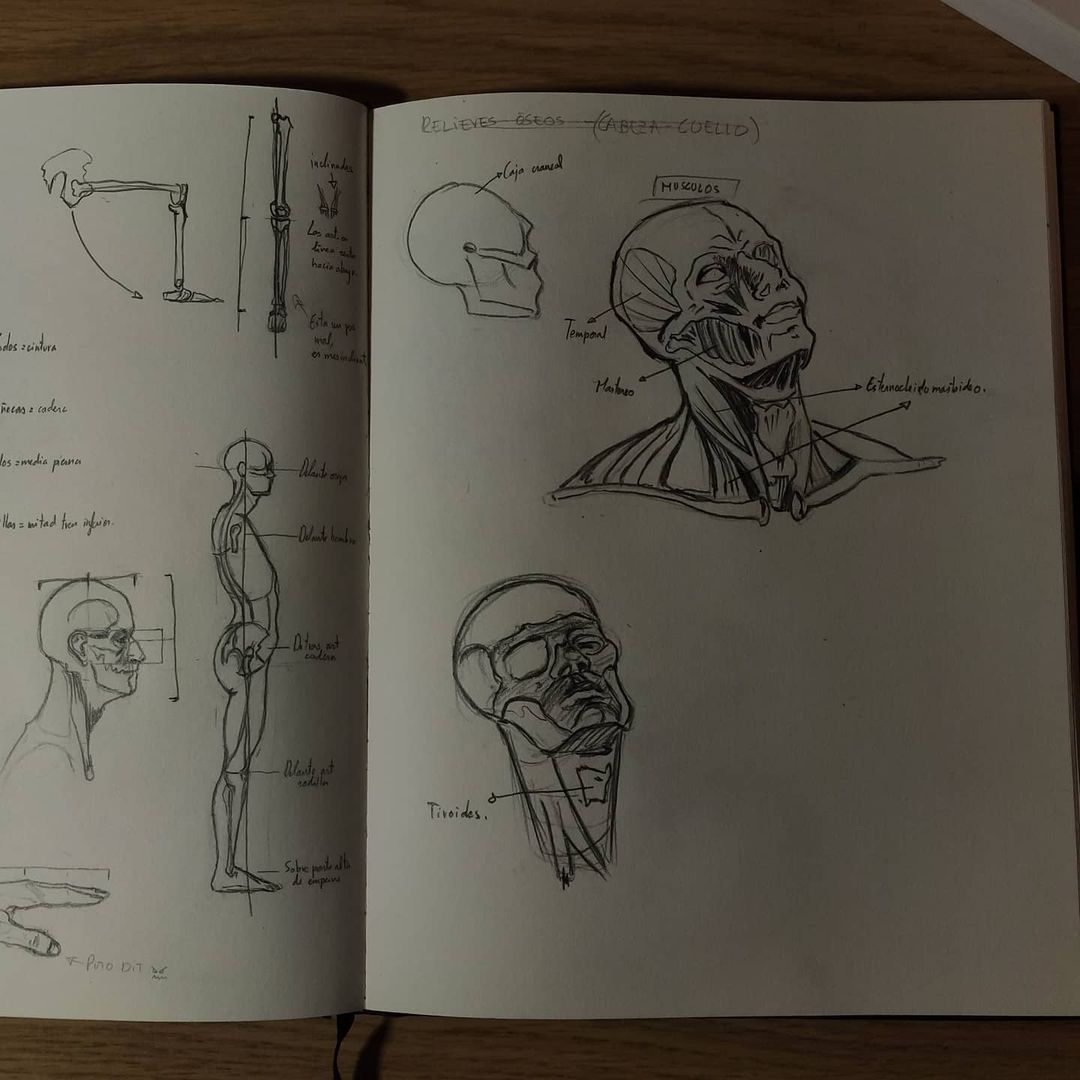 inclinadas
Los
línea recta
hacia abajo.
Esta un po
mal,
es mas inclinat
dos = cintura
ñecas = cadera
los = media pierna
llas = mitad tren inferior.
Delante oreja
Delante hombro
Detras art
cadera
Delante art
rodilla
Sobre parte alta
de empeine
PUTO DIT
RELIEVES OSEOS (CABEZA-CUELLO)
Caja craneal
MUSCULOS
Temporal
Masteseo
Esternocleidomastoideo.
Tiroides.